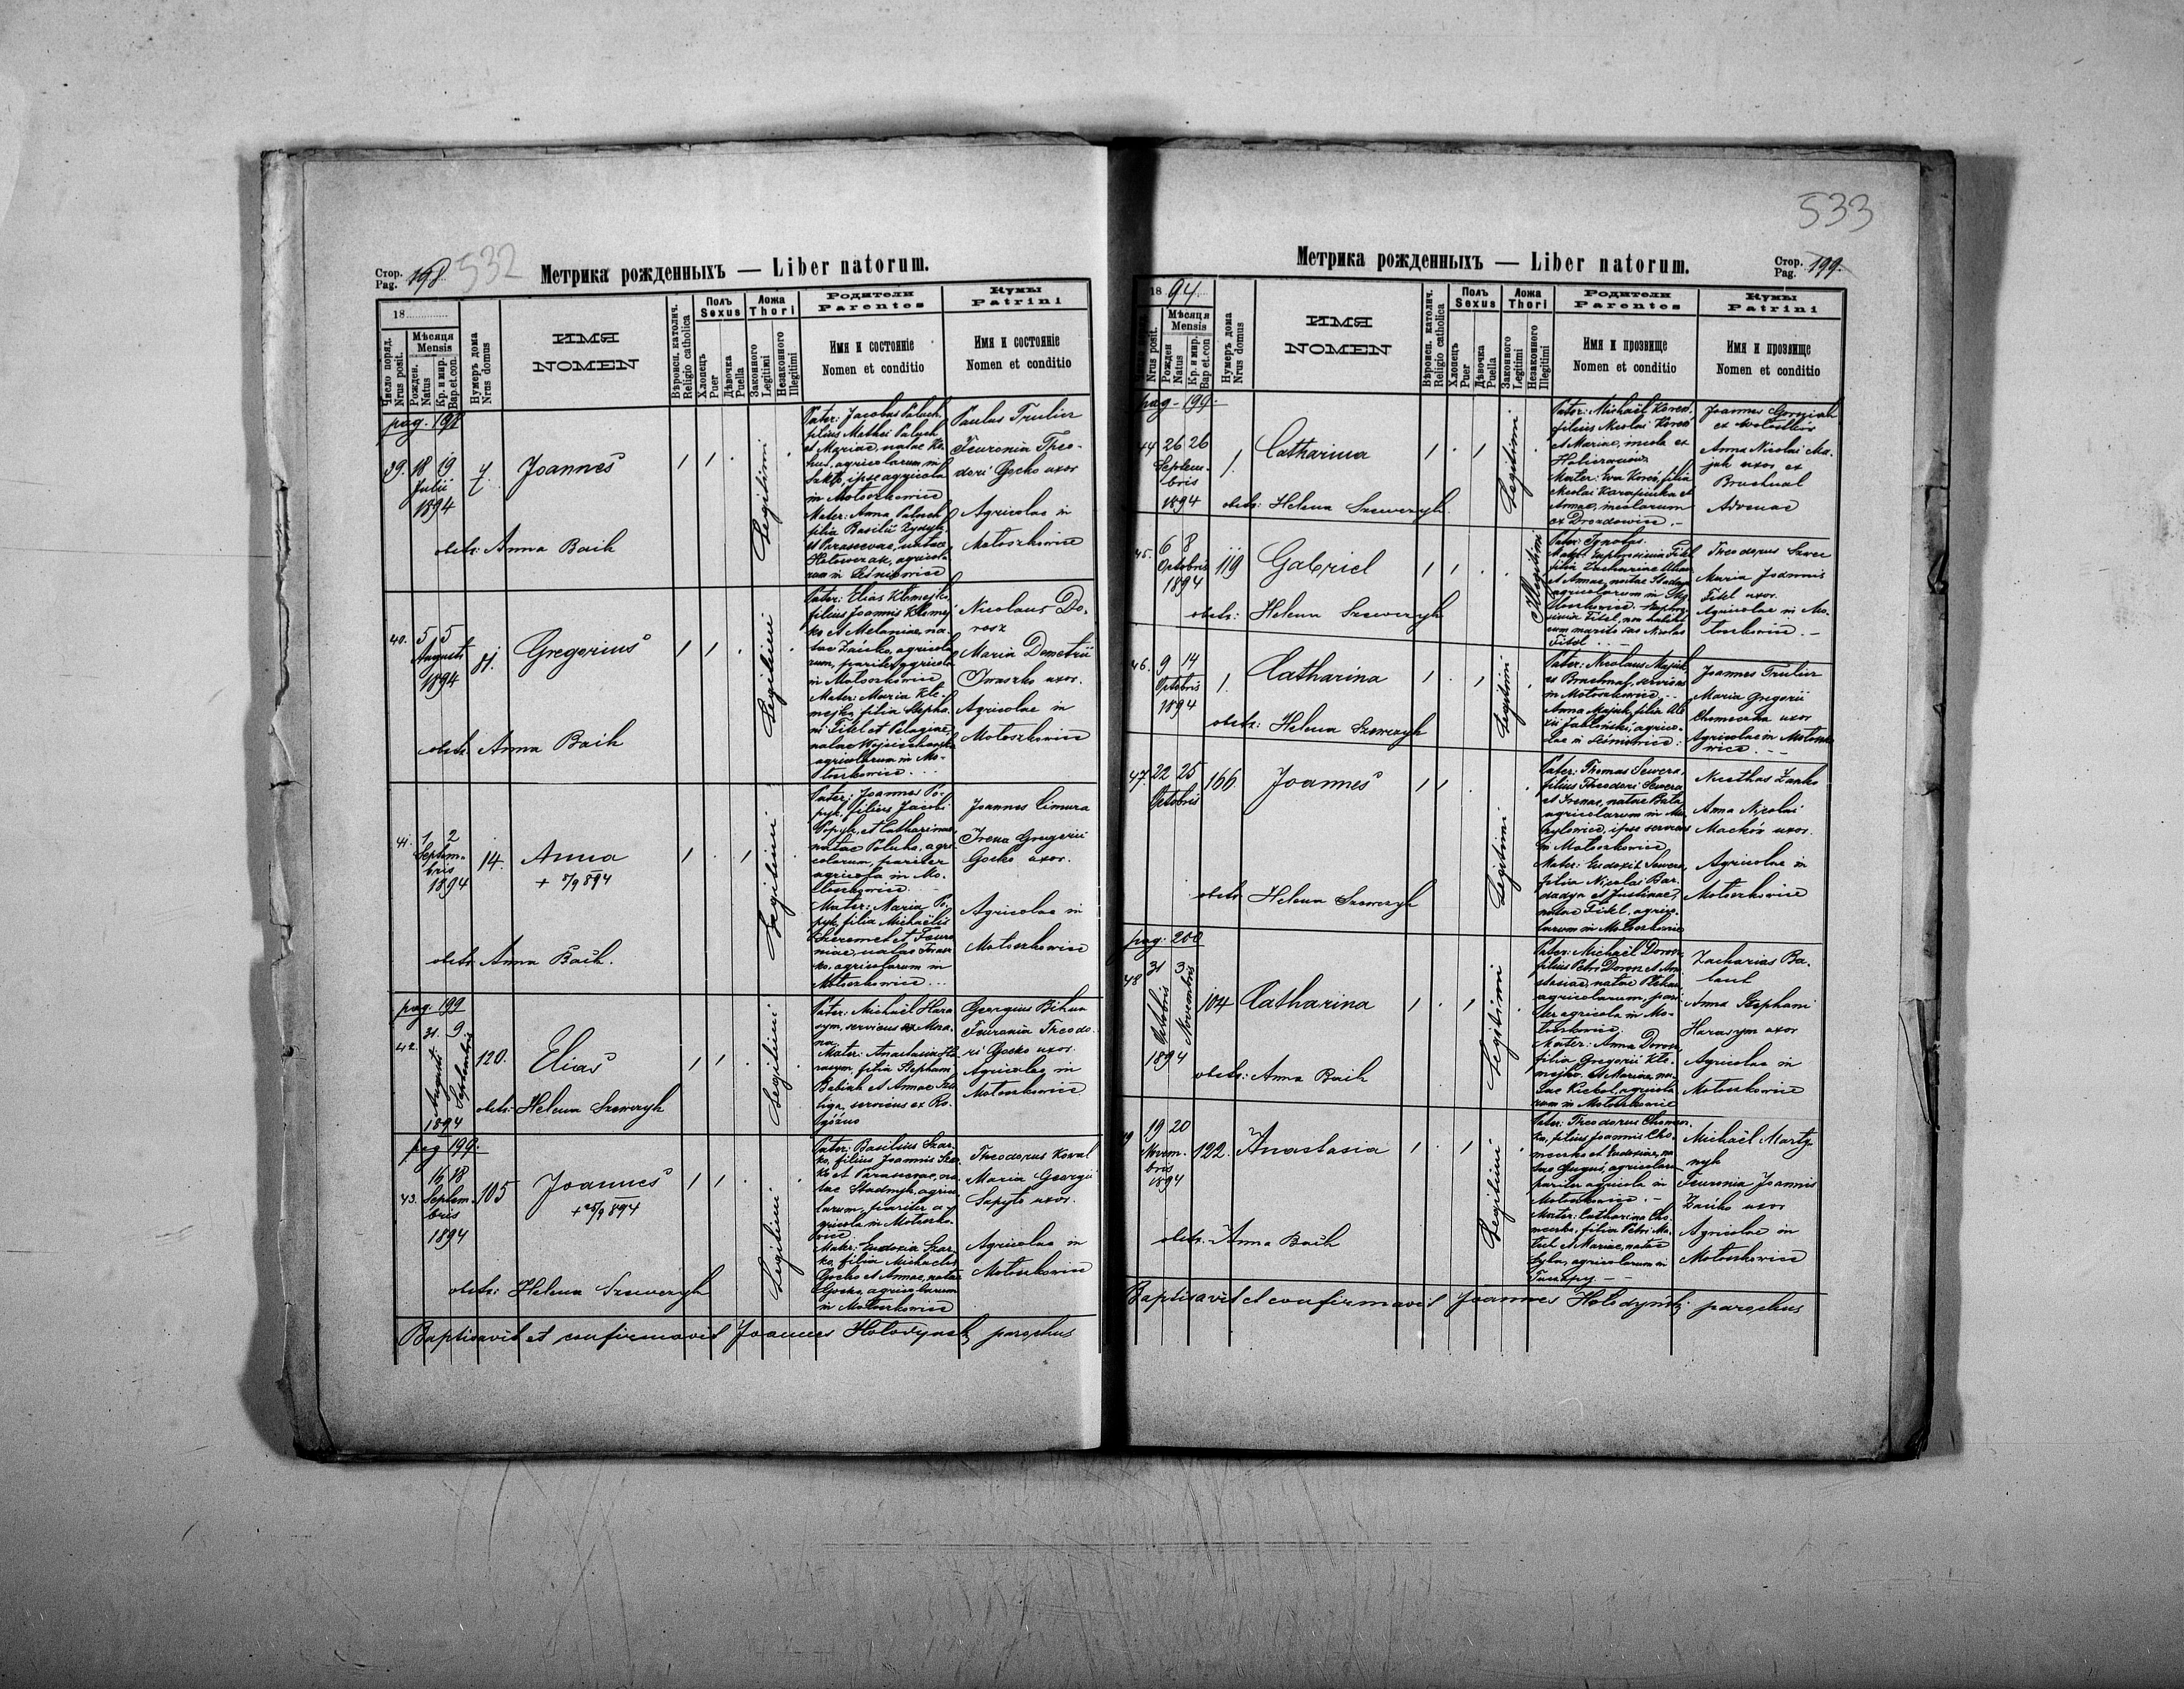 532
Стор.
Pag. 198
Метрика рожденныхъ — Liber natorum.
18
Число поряд.
Nrus posit.
Мѣсяця
Mensis
Рожден.
Natus
Кр. и мир.
Bap.et.con.
Нумеръ дома
Nrus domus
ИМЯ
NOMEN
Вѣроисп. католич.
Religio catholica
Полъ
Sexus
Хлопецъ
Puer
Дѣвочка
Puella
Ложа
Thori
Законного
Legitimi
Незаконного
Illegitimi
Родители
Parentes
Имя и состояніе
Nomen et conditio
Кумы
Patrini
Имя и состояніе
Nomen et conditio
pag. 198
39. 18 19
Julii
1894
7.
Joannes
obstr. Anna Baih
Legitimi
Pater: Jacobus Paluch,
filius Mathei Paluch
et Mariae, natae
agricolarum in
ipse agricola
in Motoszkowice
Mater: Anna Paluch
filia Basilii
et Parascevae, natae
agricola-
rum in Leśniowice
Paulus Trulier
Feuronia Theo-
dori Gocko uxor
Agricolae in
Motoszkowice
40. 5 5
Augusti
1894
81.
Gregorius
obstr. Anna Baih
Legitimi
Pater: Elias Klemejko,
filius Joannis Klemej-
ko et Melaniae, na-
tae Zańko, agricola-
rum, pariter agricola
in Motoszkowice
Mater: Maria Kle-
mejko, filia Stepha-
ni Fitel et Pelagiae,
natae Wojciechowska
agricolarum in Mo-
toszkowice.
Nicolaus Do-
rosz
Maria Demetrii
Iwaszko uxor.
Agricolae in
Motoszkowice
41. 1 2
Septem-
bris
1894
14.
Anna
+ 8/9 894
obstr. Anna Baih.
Legitimi
Pater: Joannes Po-
pyk, filius Jacobi
Popyk, et Catharinae,
natae Poluha, agri-
colarum, pariter
agricola in Mo-
toszkowice
Mater: Maria Po-
pyk, filia Michaëlis
Szeremet et Feuro-
niae, natae
ko, agricolarum in
Motoszkowice
Joannes Cimura
Irena Gregorii
Gocko uxor.
Agricolae in
Motoszkowice
pag. 199
42. 31. 9
Augusti
Septembris
1894
120.
Elias
obstr: Helena Szewczyk
Legitimi
Pater: Michaël Hara
sym, serviens ex Mora-
na,
Mater: Anastasia Ha-
rasym, filia Stephani
Babiak et Annae
serviens ex Ro-
góźno
Georgius Bihun
Feuronia Theodo-
ri Gocko uxor.
Agricolae in
Motoszkowice
pag 199.
43. 16 18
Septem-
bris
1894
105
Joannes
+ 25/9 894
obstr: Helena Szewczyk
Legitimi
Pater: Basilius Szar-
ko, filius Joannis Szar-
ko et Parascevae, na-
tae Stadnyk, agrico-
larum, pariter a-
gricola in Motoszko-
wice
Mater: Eudoxia Szar-
ko, filia Michaelis
Gocko et Annae, natae
Gocko, agricolarum
in Motoszkowice
Theodorus Koval
Maria Georgii
Sapyto uxor.
Agricolae in
Motoszkowice
Baptisavit et confirmavit Joannes Hołodyński parochus
533
Метрика рожденныхъ — Liber natorum.
Стор.
Pag. 199.
1894.
Nrus posit.
Мѣсяця
Mensis
Рожден
Natus
Кр. и мир.
Bap.et.con
Нумеръ дома
Nrus domus
ИМЯ
NOMEN
Вѣроисп. католич.
Religio catholica
Полъ
Sexus
Хлопецъ
Puer
Дѣвочка
Puella
Ложа
Thori
Законного
Legitimi
Незаконного
Illegitimi
Родители
Parentes
Имя и прозвище
Nomen et conditio
Кумы
Patrini
Имя и прозвище
Nomen et conditio
pag - 199.
44 26 26
Septem-
bris
1894
1.
Catharina
obstr: Helena Szewczyk
Legitimi
Pater: Michaël Koreń,
filius Nicolai Koreń
et Mariae, incola ex
Mater: Eva Koreń, filia
Nicolai et
Annae, incolarum
ex Drozdowice.-
Joannes Gorniak
ex
Anna Nicolai Ma-
jak uxor ex
Bruchnal
Advenae
45. 6 8
Octobris
1894
119
Gabriel
obstr: Helena Szewczyk
Illegitimi
Pater: Ignotus.
Mater: Euphrosinia Fitel
filia Zachariae
et Annae, natae Stadnyk
agricolarum in
Fitel, non habitat
cum marito suo Nicolao
Fitel
Theodorus Szwec
Maria Joannis
Fitel uxor.
Agricolae in Mo-
toszkowice.-
46. 9 14
Octobris
1894
1.
Catharina
obstr: Helena Szewczyk
Legitimi
Pater: Nicolaus Majak
ex Bruchnal, serviens
in Motoszkowice,
Anna Majak, filia Ale-
xii Jabłoński, agrico-
lae in Leśniowice.
Joannes Trulier
Maria Gregorii
Chomeczka uxor
Agricolae in Motoszko-
wice.
47. 22 25
Octobris
166.
Joannes
obstr. Helena Szewczyk
Legitimi
Pater: Thomas Sewera,
filius Theodori Sewera
et Irenae, natae Bula
agricolarum in
ipse serviens
in Motoszkowice,
Mater: Eudoxia Sewera,
filia Nicolai Bar-
dadyn et Justinae,
natae Fitel, agrico-
larum in Motoszkowice
Nicethas Zańko
Anna Nicolai
Machór uxor.
Agricolae in
Motoszkowice
pag. 200
48 31 3
Octobris
Novembris
1894
104
Catharina
obstr: Anna Baih
Legitimi
Pater: Michaël Dorosz,
filius Petri Dorosz et Ana-
stasiae, natae
agricolarum, pari-
ter agricola in Mo-
toszkowice,
Mater: Anna Dorosz
filia Gregorii Kle-
mejko et Mariae, na-
tae agricola-
rum in Motoszkowice
Zacharias Ba-
laut
Anna Stephani
Harasym uxor
Agricolae in
Motoszkowice
19 20
Novem-
bris
1894
122.
Anastasia
obstr. Anna Baih
Legitimi
Pater: Theodorus Chomecz-
ko, filius Joannis Cho-
meczko et Eudoxiae, na-
tae agricolarum
pariter agricola in
Motoszkowice.-
Mater: Catharina Cho-
meczko, filia Petri
et Mariae, natae
agricolarum in
Tuczapy.
Michaël Marty-
nyk
Feuronia Joannis
Zańko uxor
Agricolae in
Motoszkowice
Baptisavit et confirmavit Joannes Hołodyński parochus